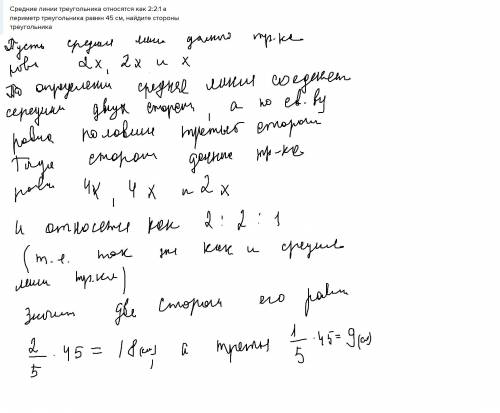 Средние линии треугольника относятся как 2:2:1 а
периметр треугольника равен 45 см, найдите стороны
треугольника
Пусть средин лини данного тр.ка
равн 2x, 2x и x
По определени средняя линия соединяет
середины двух сторон, а по св.ву
равна половин третьей стороны
Тогда сторон данне тр-ка
равн 4x, 4x и 2x
И относятся как 2 : 2 : 1
(т.е. так же как и средние
лини тр.ка)
Значит две сторон его равн
2/5 · 45 = 18(см), а треть 1/5 · 45 = 9(см)